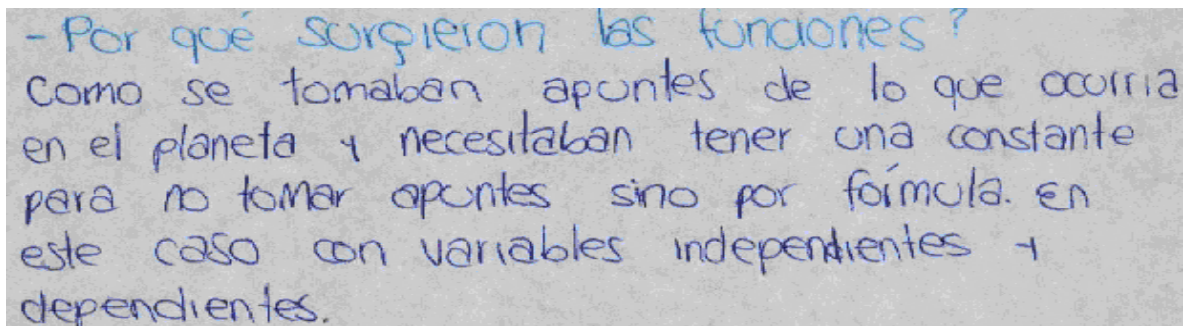 - Por qué surgieron las funciones?
Como se tomaban apuntes de lo que ocurria
en el planeta y necesitaban tener una constante
para no tomar apuntes sino por fórmula. En
este caso con variables independientes y
dependientes.